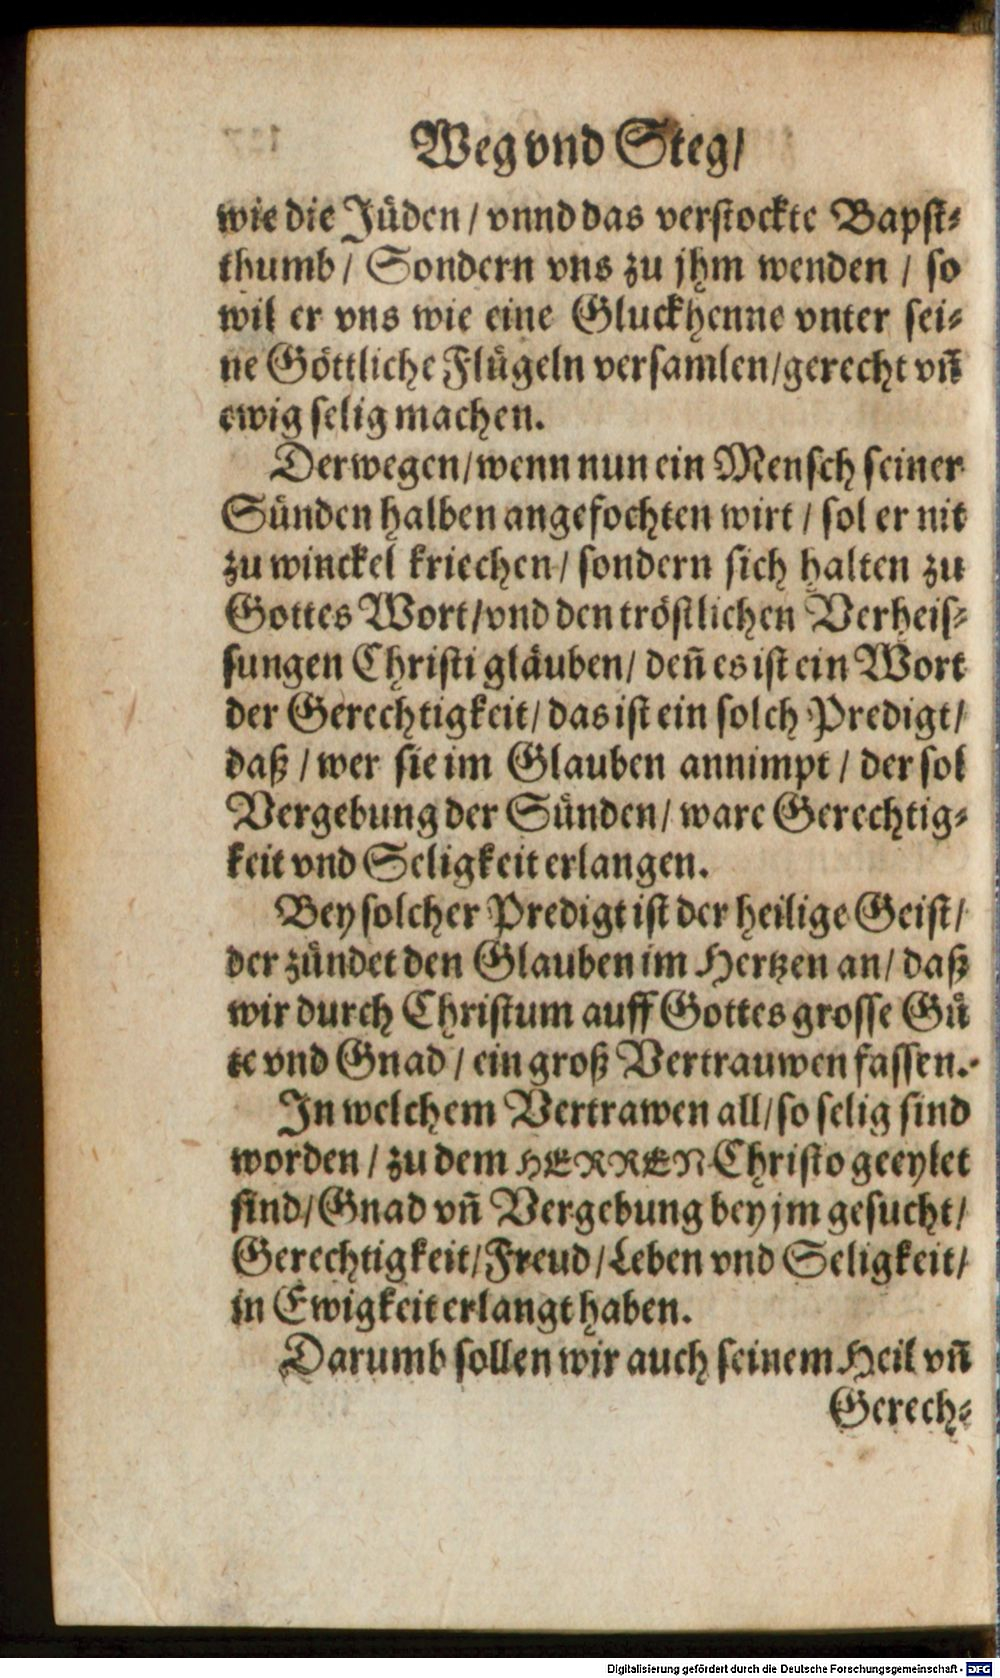 Weg vnd Steg/
wie die Jüden / vnnd das verstockte Bapst-
thumb / Sondern vns zu jhm wenden / so
wil er vns wie eine Gluckhenne vnter sei-
ne Göttliche Flügeln versamlen/gerecht vñ
ewig selig machen.
Derwegen/wenn nun ein Mensch seiner
Sünden halben angefochten wirt / sol er nit
zu winckel kriechen / sondern sich halten zu
Gottes Wort/vnd den tröstlichen Verheis-
sungen Christi gläuben/ deñ es ist ein Wort
der Gerechtigkeit/ das ist ein solch Predigt/
daß / wer sie im Glauben annimpt / der sol
Vergebung der Sünden/ ware Gerechtig-
keit vnd Seligkeit erlangen.
Bey solcher Predigt ist der heilige Geist/
der zündet den Glauben im Hertzen an/ daß
wir durch Christum auff Gottes grosse Gü
te vnd Gnad / ein groß Vertrauwen fassen.
In welchem Vertrawen all/so selig sind
worden / zu dem HERREN Christo geeylet
sind/Gnad vñ Vergebung bey jm gesucht/
Gerechtigkeit/Freud/Leben vnd Seligkeit/
in Ewigkeit erlangt haben.
Darumb sollen wir auch seinem Heil vñ
Gerech-
Digitalisierung gefördert durch die Deutsche Forschungsgemeinschaft - DFG